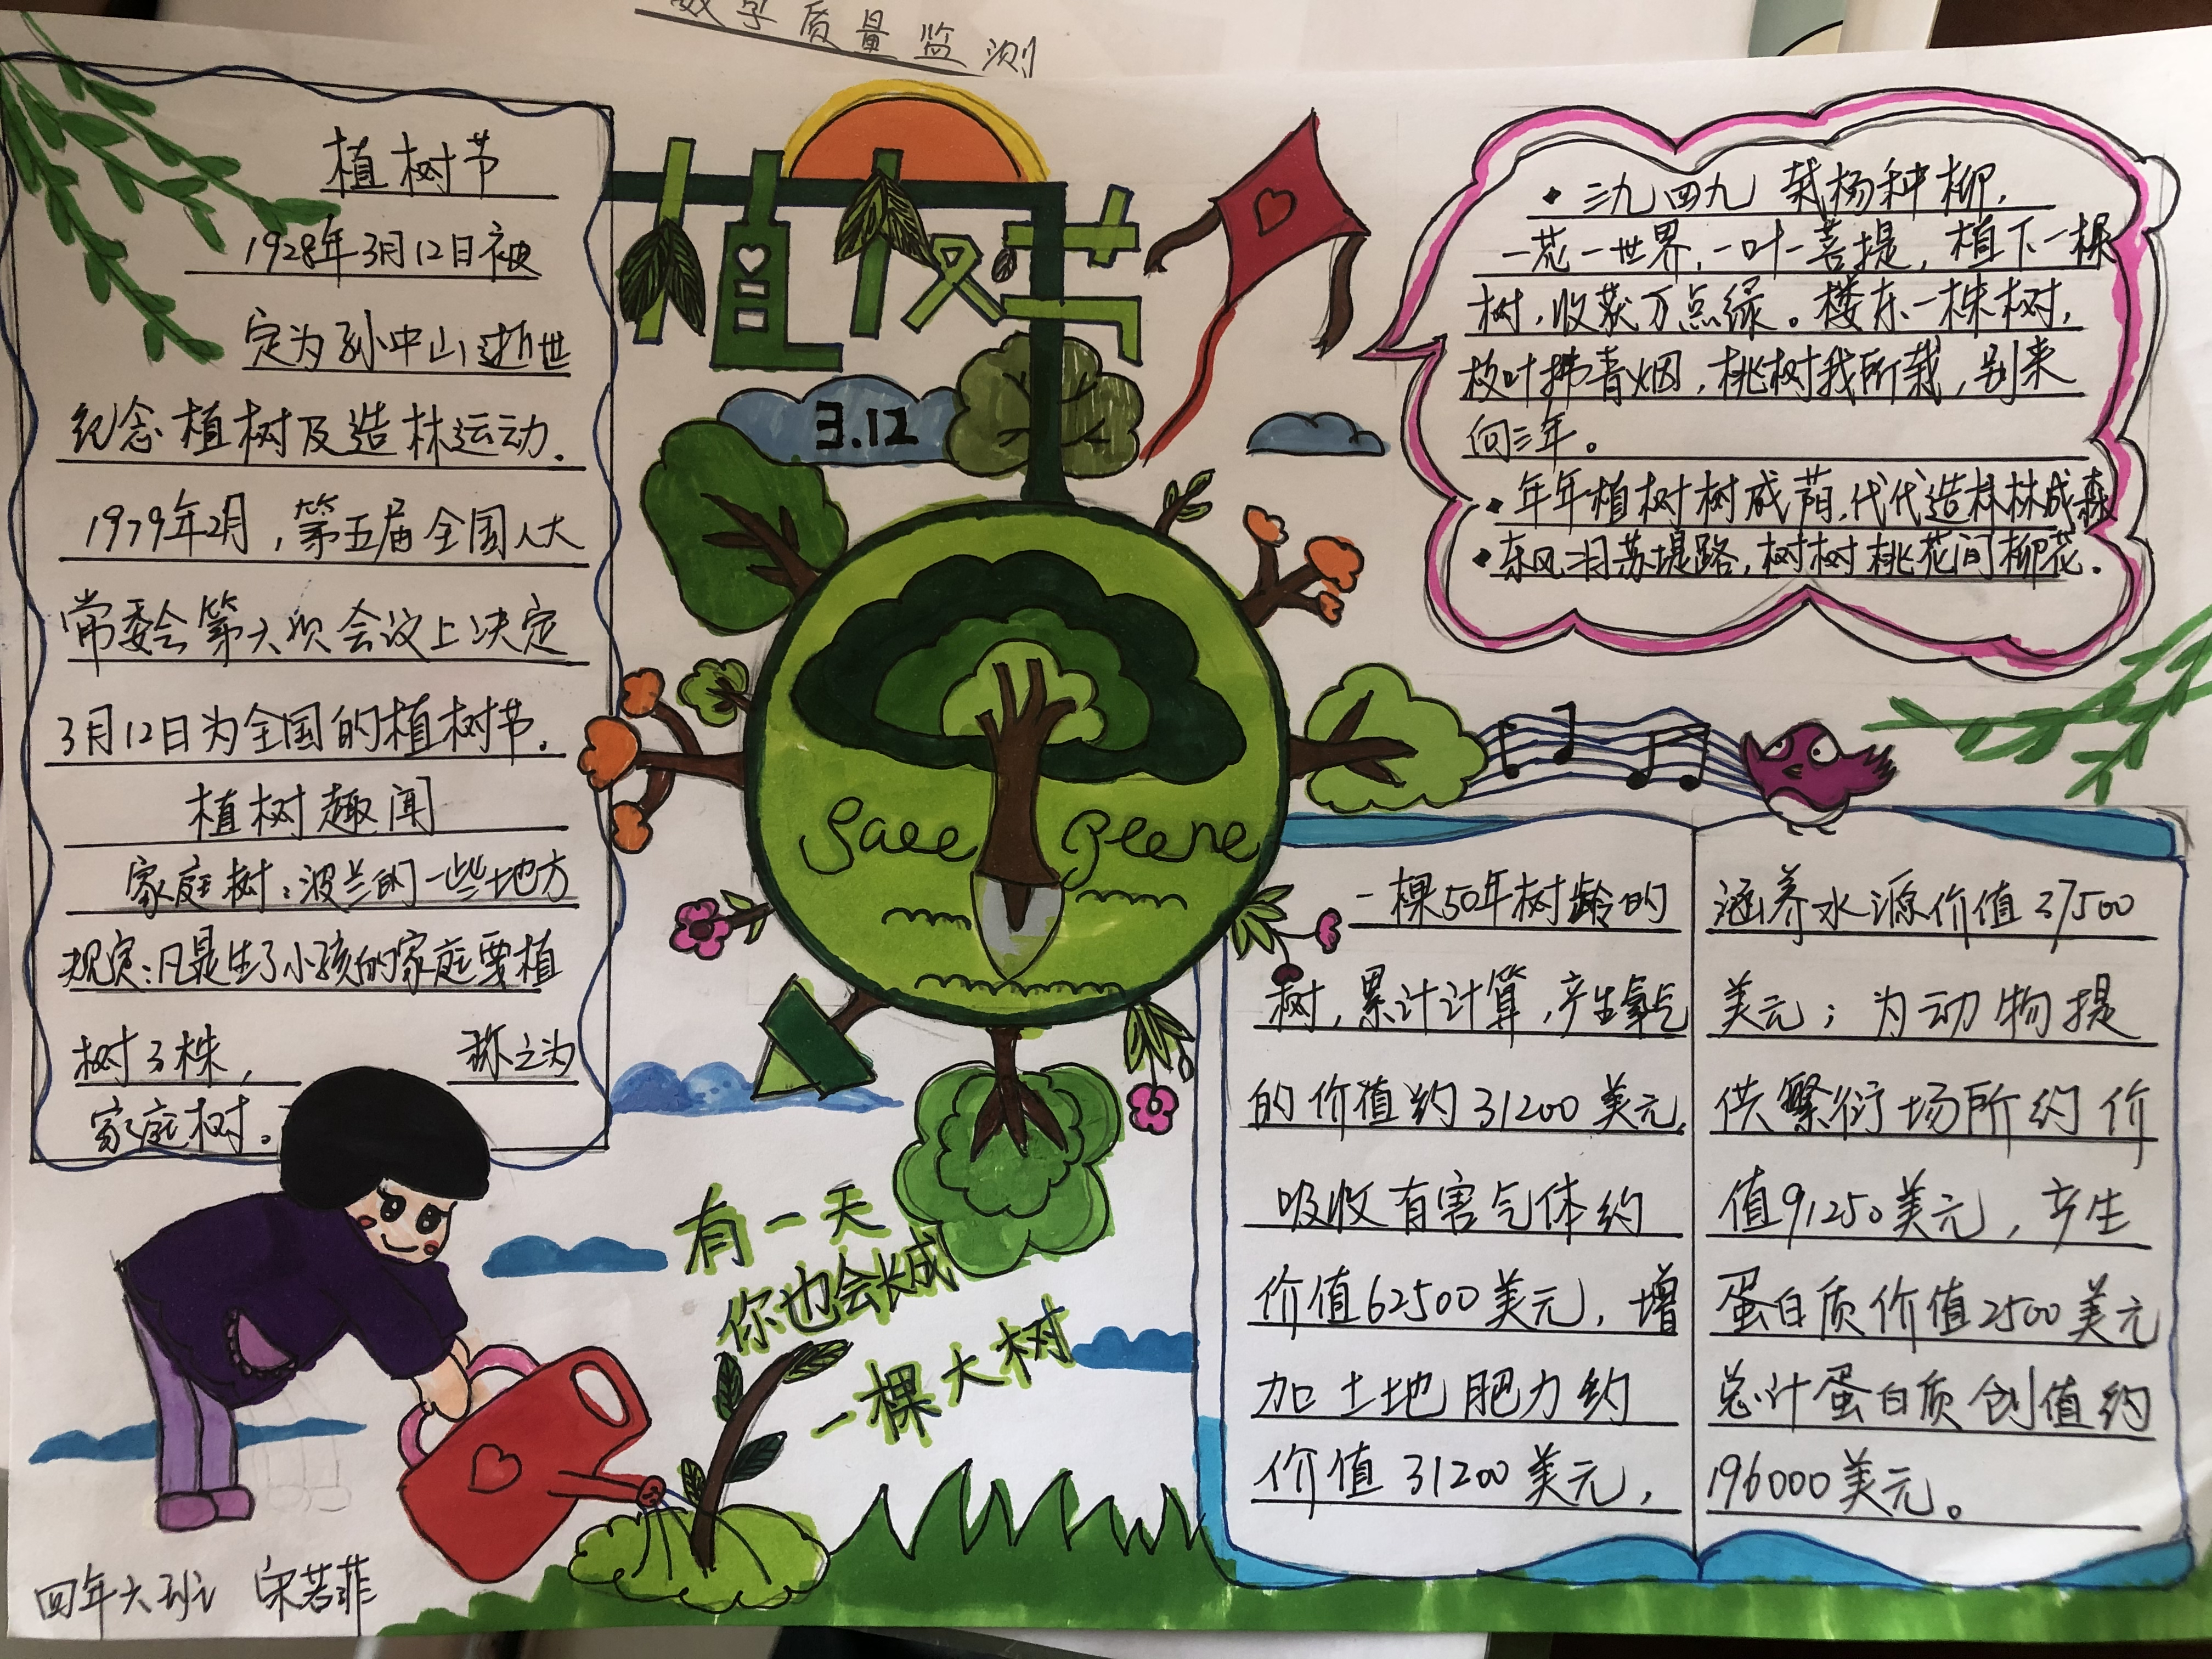 数学质量监测
植树节
1928年3月12日被
定为孙中山逝世
纪念植树及造林运动.
1979年2月,第五届全国人大
常委会第六次会议上决定
3月12日为全国的植树节.
植树趣闻
家庭树:波兰的一些地方
规定:凡是生了小孩的家庭要植
树3株,
称之为
家庭树.
植树节
3.12
三九四九 栽杨种柳.
一花一世界,一叶一菩提,植下一棵
树,收获万点绿。楼东一株树,
枝叶拂青烟,桃树我所栽,别来
向三年。
年年植树树成荫,代代造林林成森
东风 苏堤路,树树桃花间柳花.
一棵50年树龄的
树,累计计算,产生氧气
的价值约31200美元,
吸收有害气体约
价值62500美元,增
加土地肥力约
价值31200美元,
涵养水源价值37500
美元;为动物提
供繁衍场所约价
值91250美元,产生
蛋白质价值2500美元
总计蛋白质创值约
196000美元。
有一天
你也会长成
一棵大树
四年六班 宋若菲